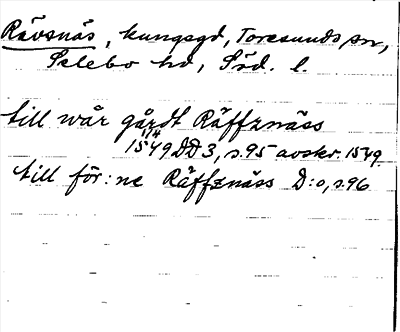 Rävsnäs, kungsgd, Toresunds sn,
Selebo hd, Söd. l.
till wår gårdt Räffznäss
1/4
1549 DD 3, s. 95 avskr. 1549.
till för:ne Räffznäss D:o, s. 96